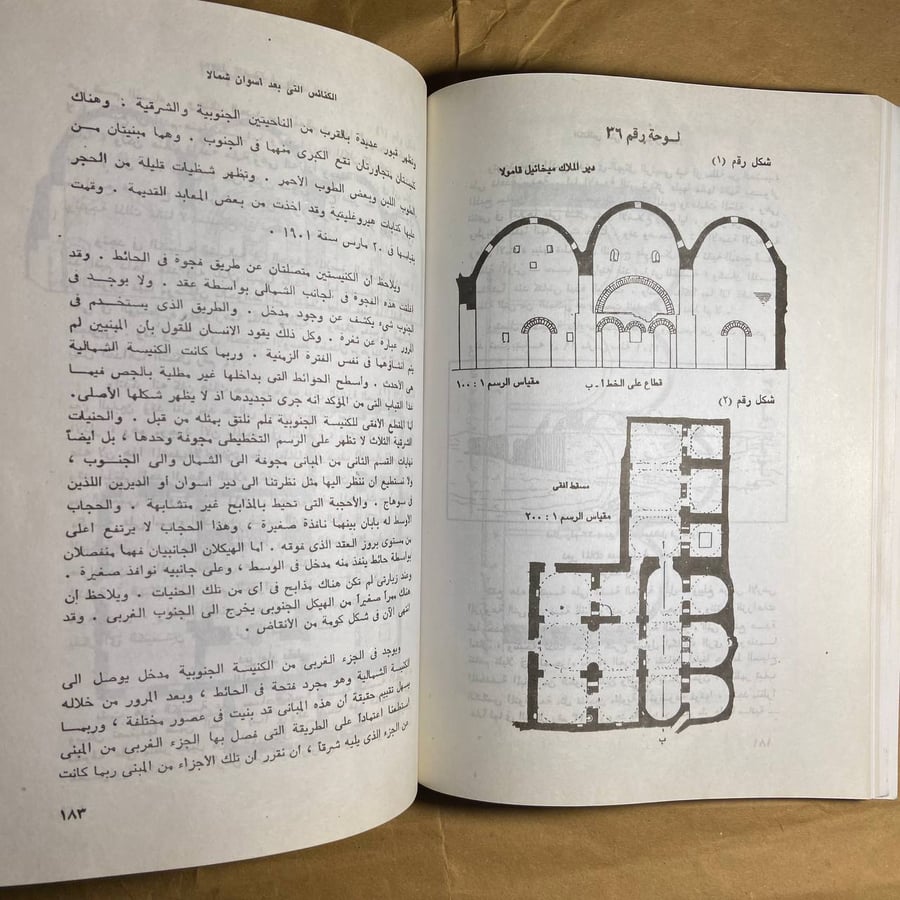 الكنائس التى بعد اسوان شمالا
وتظهر قبور عديدة بالقرب من الناحيتين الجنوبية والشرقية : وهناك
كنيستان متجاورتان تقع الكبرى منهما فى الجنوب . وهما مبنيتان مــن
الطوب اللبن وبعض الطوب الأحمر . وتظهر شظيات قليلة من الحجر
عليها كتابات هيروغليفية وقد اخذت من بعض المعابد القديمة . وقمت
بقياسها فى ٢٠ مارس سنة ١٩٠١ .
ويلاحظ ان الكنيستين متصلتان عن طريق فجوة فى الحائط . وقد
اغلقت هذه الفجوة فى الجانب الشمالى بواسطة عقد . ولا يوجــد فى
الجنوب شىء يكشف عن وجود مدخل . والطريق الذى يستخــدم فى
المرور عبارة عن ثغرة . وكل ذلك يقود الانسان للقول بأن المبنيين لم
يتم انشاؤهما فى نفس الفترة الزمنية . وربما كانت الكنيسة الشمالية
هى الأحدث . واسطح الحوائط التى بداخلها غير مطلية بالجص فيمــا
عدا القباب التى من المؤكد انه جرى تجديدها اذ لا يظهر شكلها الأصلى.
اما المقطع الأفقى للكنيسة الجنوبية فلم نلتق بمثله من قبل . والحنيات
الشرقية الثلاث لا تظهر على الرسم التخطيطى مجوفة وحدها ، بل ايضاً
نهايات القسم الثانى من المبانى مجوفة الى الشمال والى الجنــوب ،
ولا نستطيع ان ننظر اليها مثل نظرتنا الى دير اسوان او الديرين اللذين
فى سوهاج . والأحجبة التى تحيط بالمذابح غير متشابهة . والحجاب
الاوسط له بابان بينهما نافذة صغيرة ، وهذا الحجاب لا يرتفع اعلى
من مستوى بروز العقد الذى فوقه . اما الهيكلان الجانبيان فهما منفصلان
بواسطة حائط ينفذ منه مدخل فى الوسط ، وعلى جانبيه نوافذ صغيرة .
وعند زيارتى لم تكن هناك مذابح فى أى من تلك الحنيات . ويلاحظ ان
هناك ممراً صغيراً من الهيكل الجنوبى يخرج الى الجنوب الغربى . وقد
انتهى الآن فى شكل كومة من الأنقاض .
ويوجد فى الجزء الغربى من الكنيسة الجنوبية مدخل يوصل الى
الكنيسة الشمالية وهو مجرد فتحة فى الحائط ، وبعد المرور من خلاله
يسهل تقييم حقيقة ان هذه المبانى قد بنيت فى عصور مختلفة ، وربمــا
استطعنا اعتماداً على الطريقة التى فصل بها الجزء الغربى من المبنى
عن الجزء الذى يليه شرقاً ، ان نقرر ان تلك الأجزاء من المبنى ربما كانت
١٨٣
لــوحة رقم ٣٦
شكل رقم (١)
دير الملاك ميخائيل قامولا
قطاع على الخط ا ـ ب
مقياس الرسم ١ : ١٠٠
شكل رقم (٢)
مسقط افقى
مقياس الرسم ١ : ٢٠٠
ا
ب